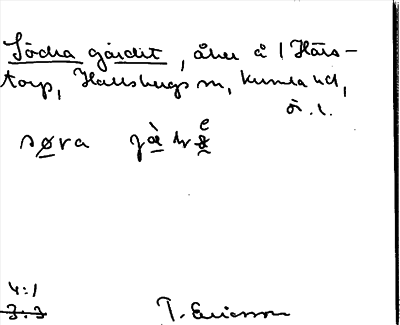 Södra gärdet, åker å 1 Hårs-
torp, Hallsbergs sn, Kumla hd,
ör. l.
søra
4:1
3:3
T. Ericsson